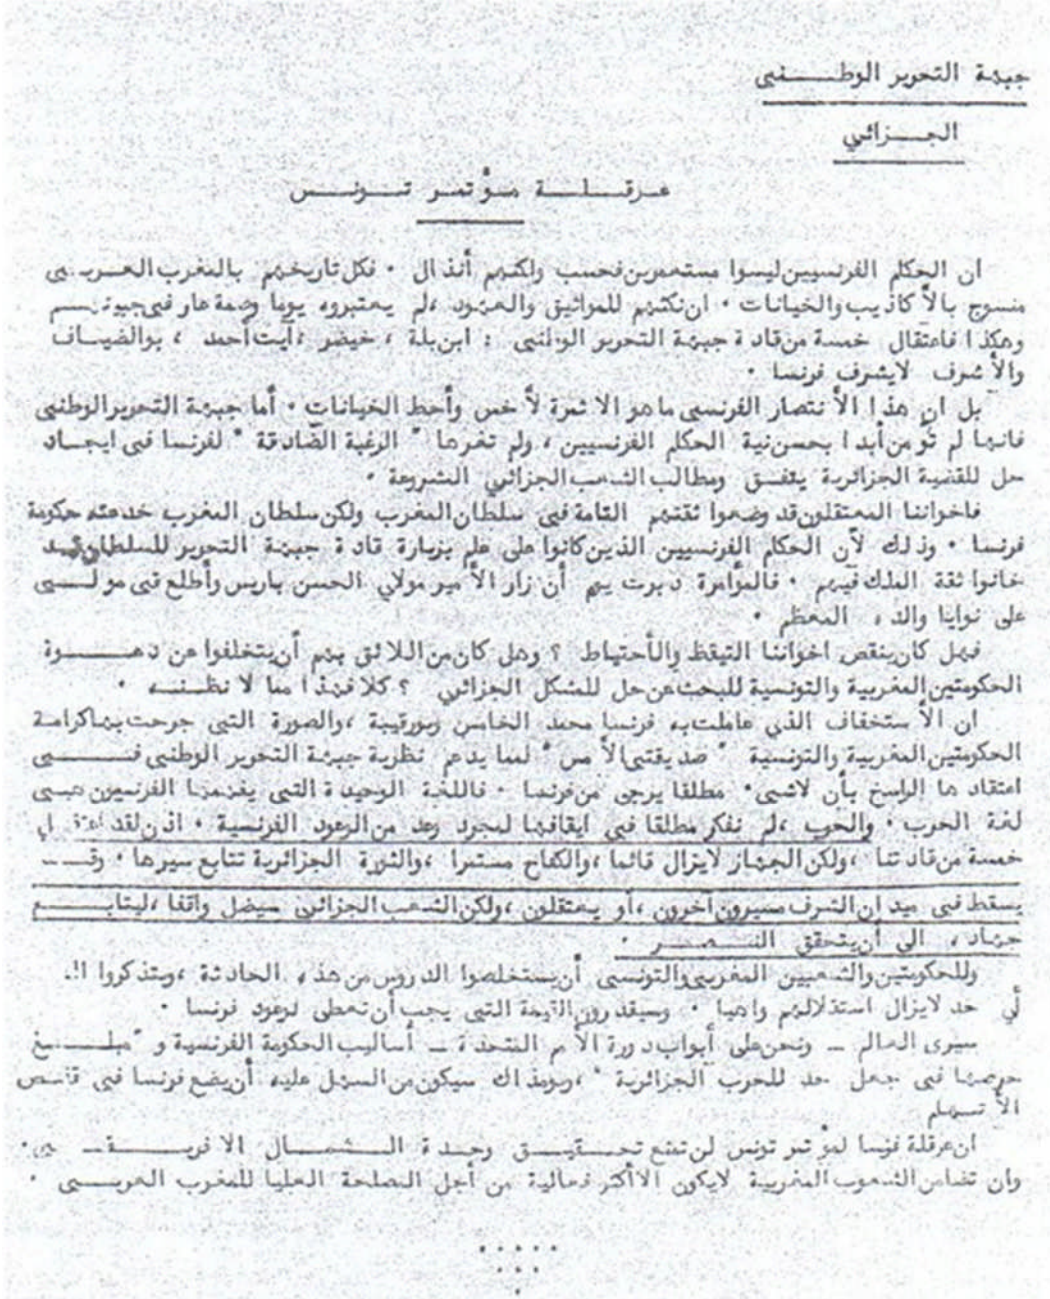 جبهة التحرير الوطـــني
الجـــزائري
عـرقـــلـــة مـؤتمـر تـــونـــس
ان الحكام الفرنسيين ليسوا مستعمرين فحسب ولكنهم أنذال ٠ فكل تاريخهم بالمغرب العربـــي
منسوج بالأكاذيب والخيانات ٠ ان نكثهم للمواثيق والعهود ،لم يعتبروه يوما وصمة عار في جبينهـــم
وهكذا فاعتقال خمسة من قادة جبهة التحرير الوطني : ابن بلة ، خيضر ،آيت أحمد ، بوالضيـاف
والأشرف لايشرف فرنسا ٠
بل ان هذا الأنتصار الفرنسي ما هو الا ثمرة لأخس وأحط الخيانات ٠ أما جبهة التحرير الوطني
فانها لم تؤمن أبدا بحسن نية الحكام الفرنسيين ، ولم تغرها " الرغبة الصادقة " لفرنسا في ايجـاد
حل للقضية الجزائرية يتفـــق ومطالب الشعب الجزائري المشروعة ٠
فاخواننا المعتقلون قد وضعوا ثقتهم التامة في سلطان المغرب ولكن سلطان المغرب خدعته حكومة
فرنسا ٠ وذلك لأن الحكام الفرنسيين الذين كانوا على علم بزيارة قادة جبهة التحرير للسلطان
خانوا ثقة الملك فيهم ٠ فالمؤامرة دبرت يوم أن زار الأمير مولاي الحسن باريس وأطلع
على نوايا والده المعظم ٠
فهل كان ينقص اخواننا التيقظ والأحتياط ؟ وهل كان من اللائق بهم أن يتخلفوا عن دعـــوة
الحكومتين المغربية والتونسية للبحث عن حل للمشكل الجزائري ؟ كلا فهذا مما لا نظنـــه ٠
ان الأستخفاف الذي عاملت به فرنسا محمد الخامس وبورقيبة ،والصورة التي جرحت بها كرامة
الحكومتين المغربية والتونسية " صديقتي الأمس " لمما يدعم نظرية جبهة التحرير الوطني فـــي
اعتقادها الراسخ بأن لاشيء مطلقا يرجى من فرنسا ٠ فاللغة الوحيدة التي يفهمها الفرنسيون هي
لغة الحرب ٠ والحرب ،لم نفكر مطلقا في ايقافها لمجرد وعد من الوعود الفرنسية ٠ اذن لقد
خمسة من قادتنا ،ولكن الجهاز لايزال قائما ،والكفاح مستمرا ،والثورة الجزائرية تتابع سيرها ٠ وقـــد
يسقط في ميدان الشرف مسيرون آخرون ،أو يعتقلون ،ولكن الشعب الجزائري سيضل واقفا ،ليتابـــع
جهاده ، الى أن يتحقق النـــصـــر ٠
وللحكومتين والشعبين المغربي والتونسي أن يستخلصوا الدروس من هذه الحادثة ،ويتذكروا الى
أي حد لايزال استقلالهم واهيا ٠ وسيقدرون القيمة التي يجب أن تعطى لوعود فرنسا ٠
سيرى العالم ــ ونحن على أبواب دورة الأمم المتحدة ــ أساليب الحكومة الفرنسية و "مبلـــغ
حرصها في جعل حد للحرب الجزائرية " ،ويومذاك سيكون من السهل عليه أن يضع فرنسا في قفـــص
الأتـــهام
ان عرقلة فرنسا لمؤتمر تونس لن تمنع تحـــقيـــق وحدة الـــشـــمـــال الافريـــقـــي٠
وان تضامن الشعوب المغربية لايكون الا أكثر فعالية من أجل المصلحة العليا للمغرب العربـــي ٠